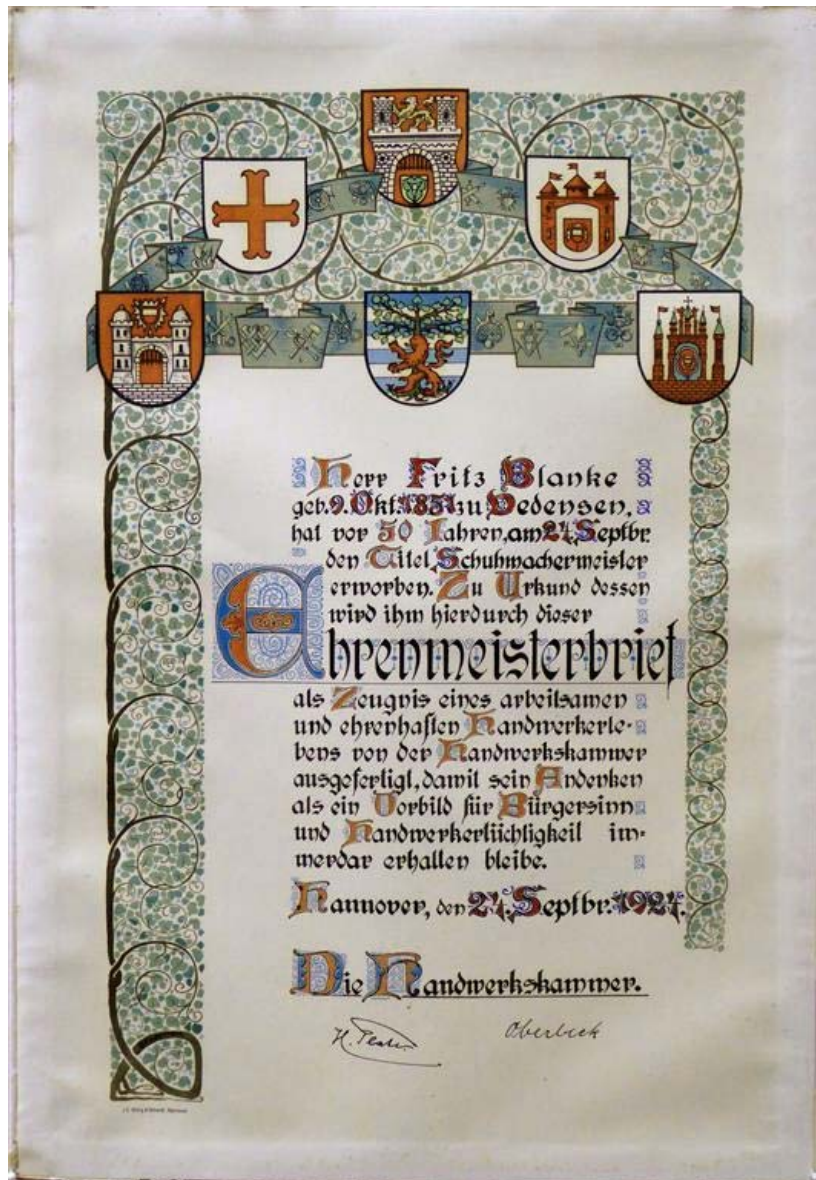 Herr Fritz Blanke
geb. 9. Okt. 1851 zu Dedensen,
hat vor 50 Jahren, am 24. Septbr.
den Titel Schuhmachermeister
erworben. Zu Urkund dessen
wird ihm hierdurch dieser
Ehrenmeisterbrief
als Zeugnis eines arbeitsamen
und ehrenhaften Handwerkerle-
bens von der Handwerkskammer
ausgefertigt, damit sein Andenken
als ein Vorbild für Bürgersinn
und Handwerkertüchtigkeit im-
merdar erhalten bleibe.
Hannover, den 24. Septbr. 1924.
Die Handwerkskammer.
Oberbeck